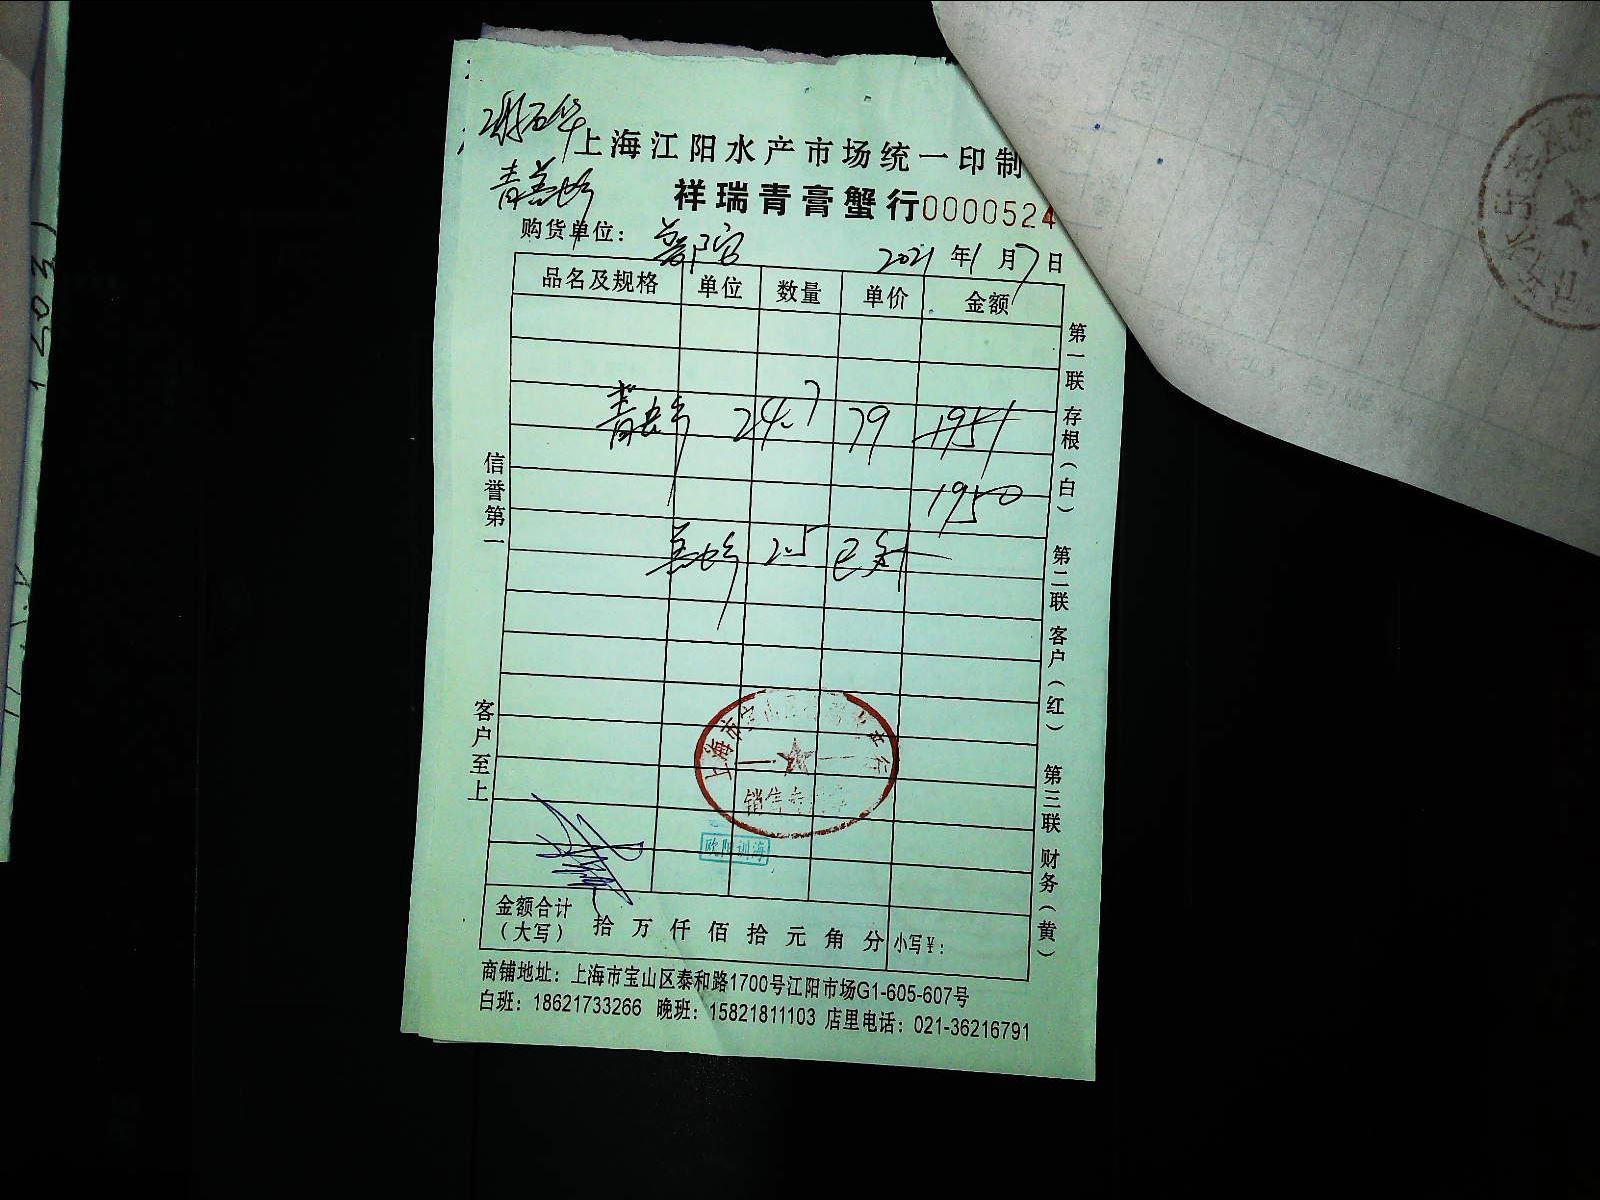 上海江阳水产市场统一印制
祥瑞青膏蟹行 0000524
购货单位：
2021年1月7日
品名及规格 单位 数量 单价 金额
24.7 79 1951
1950
2.5
信誉第一
客户至上
第一联 存根（白） 第二联 客户（红） 第三联 财务（黄）
上海市宝山
行
销售专
欧阳训海
金额合计（大写） 拾 万 仟 佰 拾 元 角 分 小写￥：
商铺地址：上海市宝山区泰和路1700号江阳市场G1-605-607号
白班：18621733266 晚班：15821811103 店里电话：021-36216791